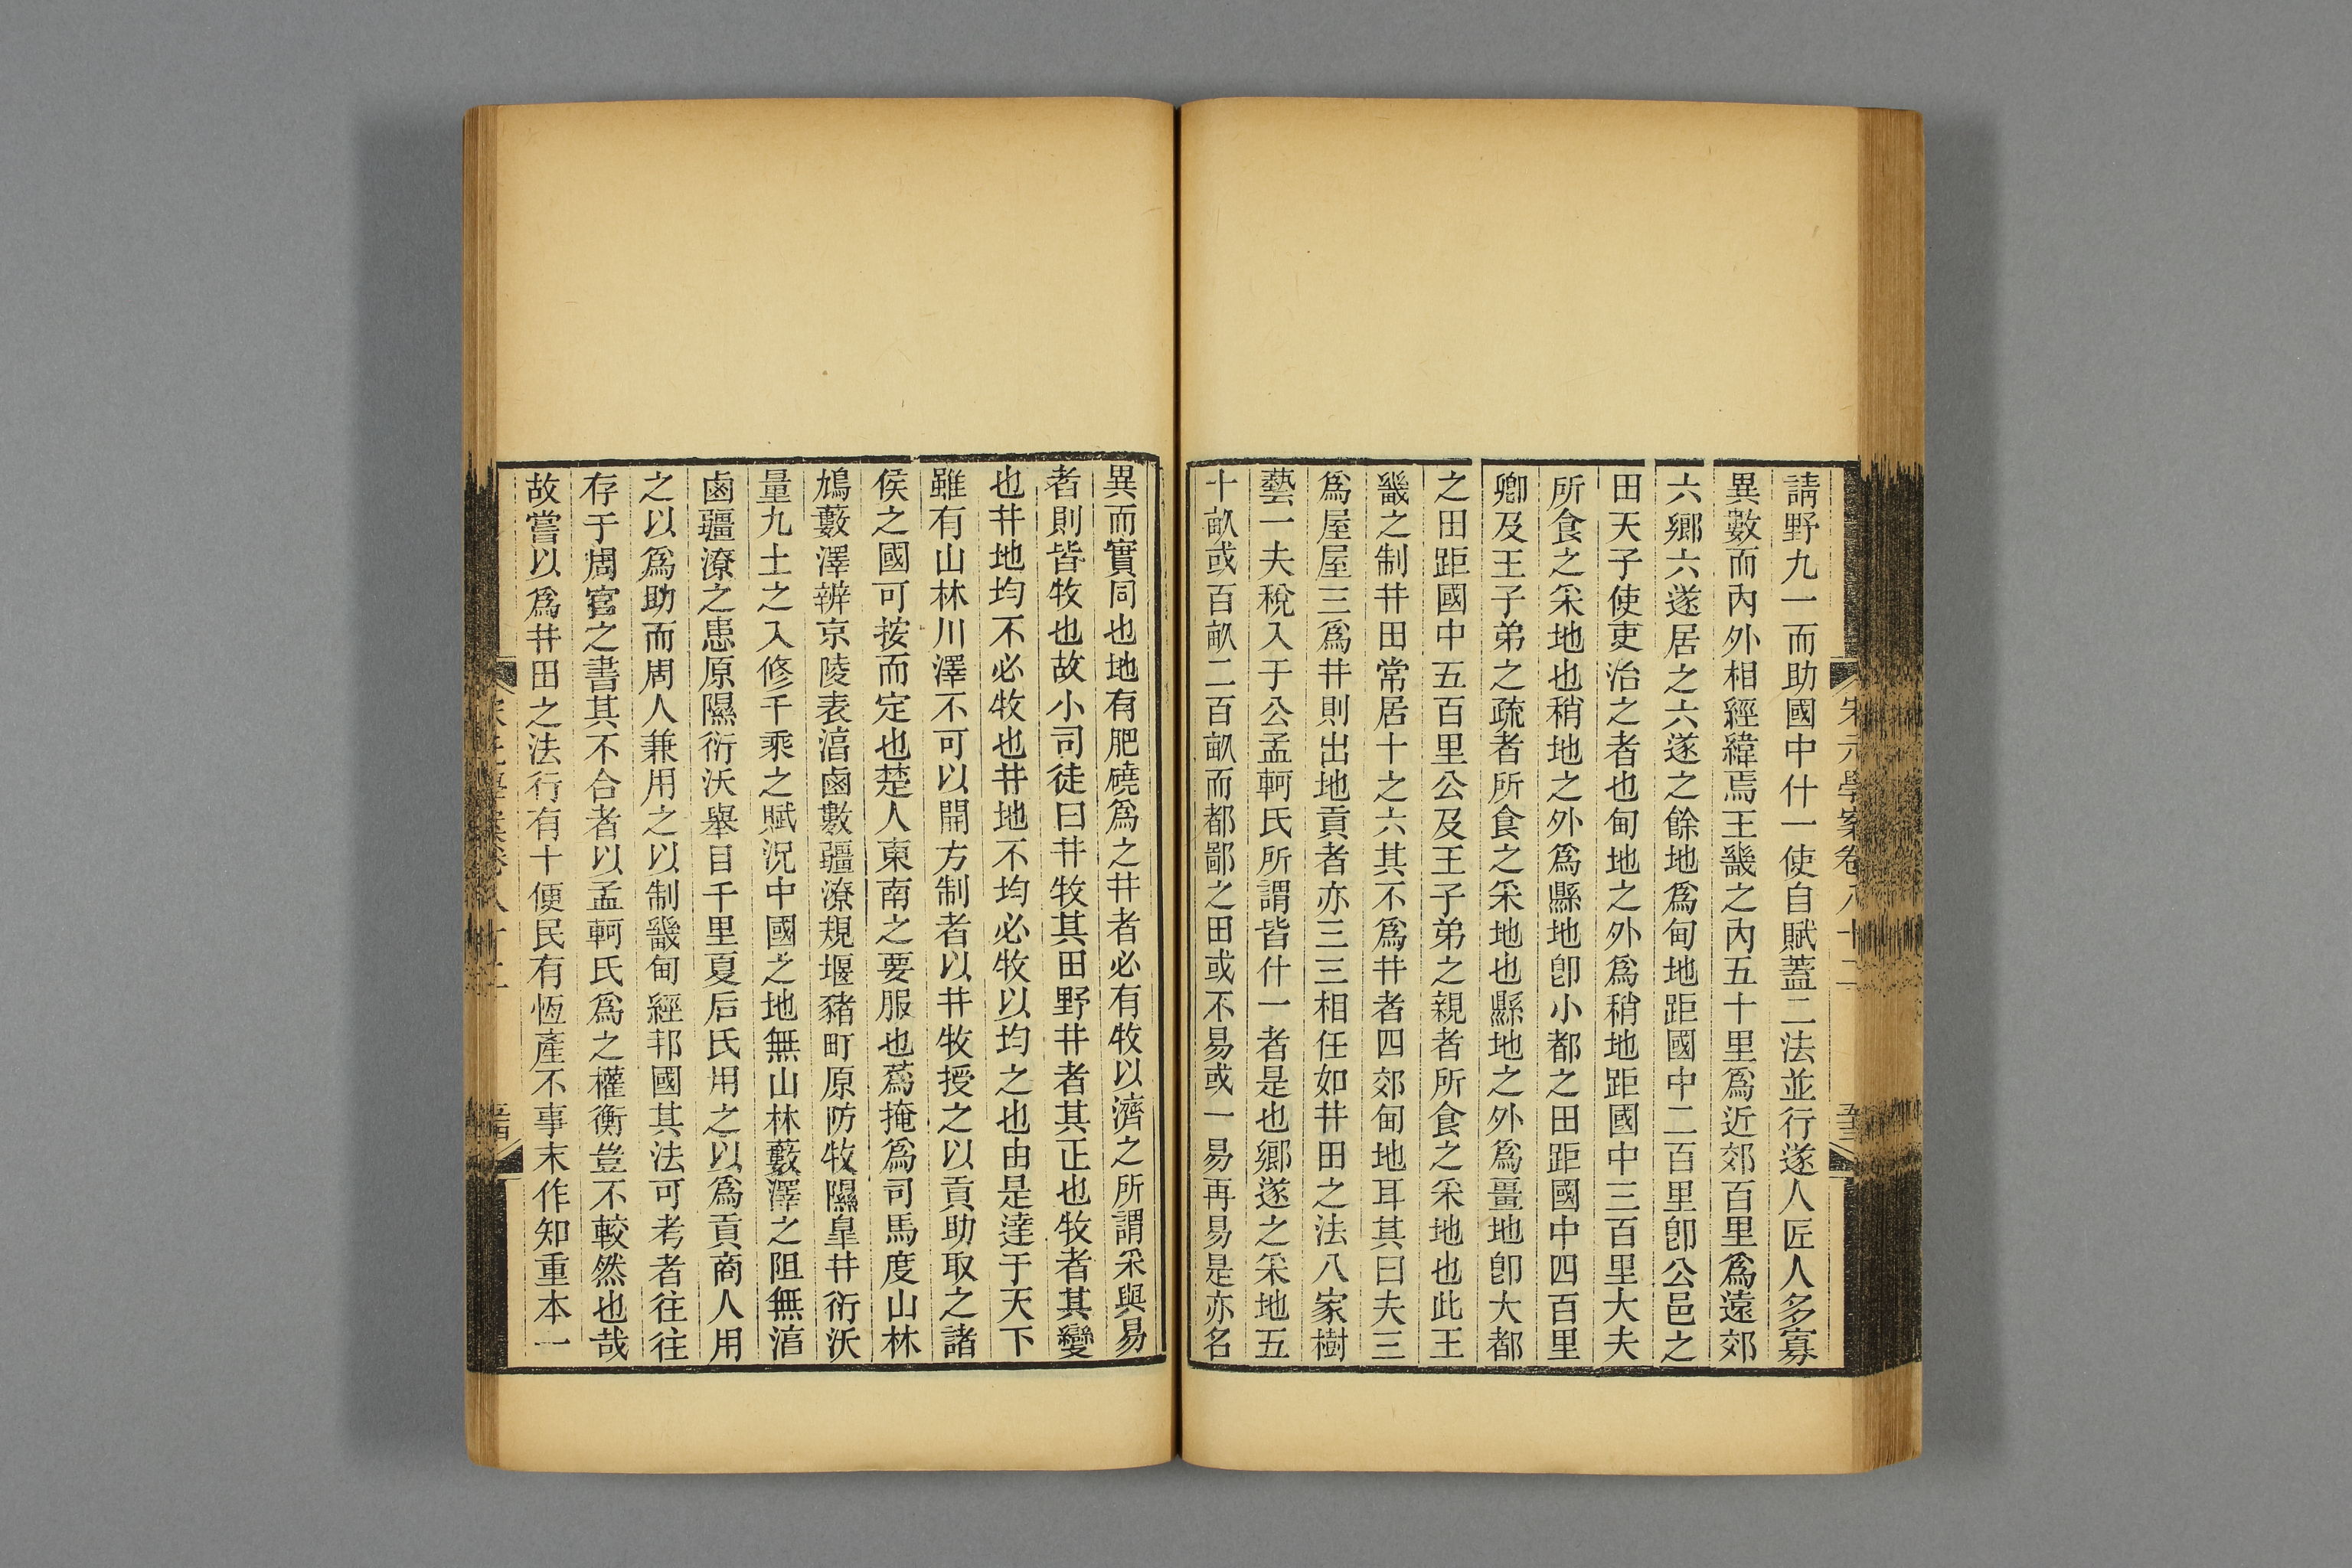 宋元學案卷八十二
請野九一而助國中什一使自賦蓋二法並行遂人匠人多寡
異數而內外相經緯焉王畿之內五十里爲近郊百里爲遠郊
六鄉六遂居之六遂之餘地爲甸地距國中二百里卽公邑之
田天子使吏治之者也甸地之外爲稍地距國中三百里大夫
所食之采地也稍地之外爲縣地卽小都之田距國中四百里
卿及王子弟之疏者所食之采地也縣地之外爲畺地卽大都
之田距國中五百里公及王子弟之親者所食之采地也此王
畿之制井田常居十之六其不爲井者四郊甸地耳其曰夫三
爲屋屋三爲井則出地貢者亦三三相任如井田之法八家樹
藝一夫稅入于公孟軻氏所謂皆什一者是也鄉遂之采地五
十畝或百畝二百畝而都鄙之田或不易或一易再易是亦名
異而實同也地有肥磽爲之井者必有牧以濟之所謂采與易
者則皆牧也故小司徒曰井牧其田野井者其正也牧者其變
也井地均不必牧也井地不均必牧以均之也由是達于天下
雖有山林川澤不可以開方制者以井牧授之以貢助取之諸
侯之國可按而定也楚人東南之要服也蔿掩爲司馬度山林
鳩藪澤辨京陵表淳鹵數疆潦規堰豬町原防牧隰皐井衍沃
量九土之入修千乘之賦況中國之地無山林藪澤之阻無淳
鹵疆潦之患原隰衍沃舉目千里夏后氏用之以爲貢商人用
之以爲助而周人兼用之以制畿甸經邦國其法可考者往往
存于周官之書其不合者以孟軻氏爲之權衡豈不較然也哉
故嘗以爲井田之法行有十便民有恆產不事末作知重本一